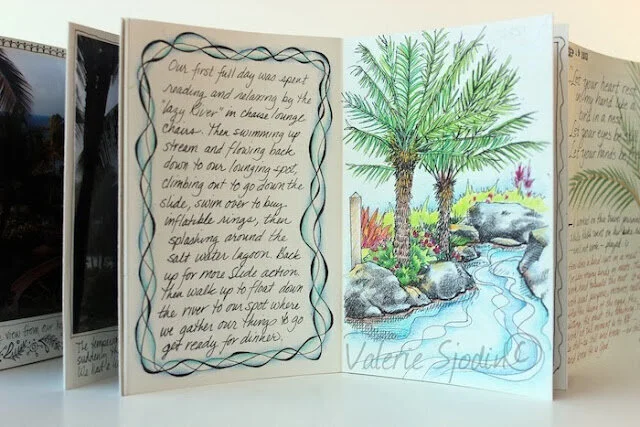 Our first full day was spent
reading and relaxing by the
"lazy River" in chaise lounge
chairs. Then swimming up
stream and flowing back
down to our lounging spot,
climbing out to go down the
slide, swim over to buy
inflatible rings, then
splashing around the
salt water lagoon. Back
up for more slide action.
Then walk up to float down
the river to our spot where
we gather our things to go
get ready for dinner.
Valerie Sjodin ©
view from our
The
suddenly
We
Let your heart rest
bird in a nest
Let your eyes be
Let your hands be